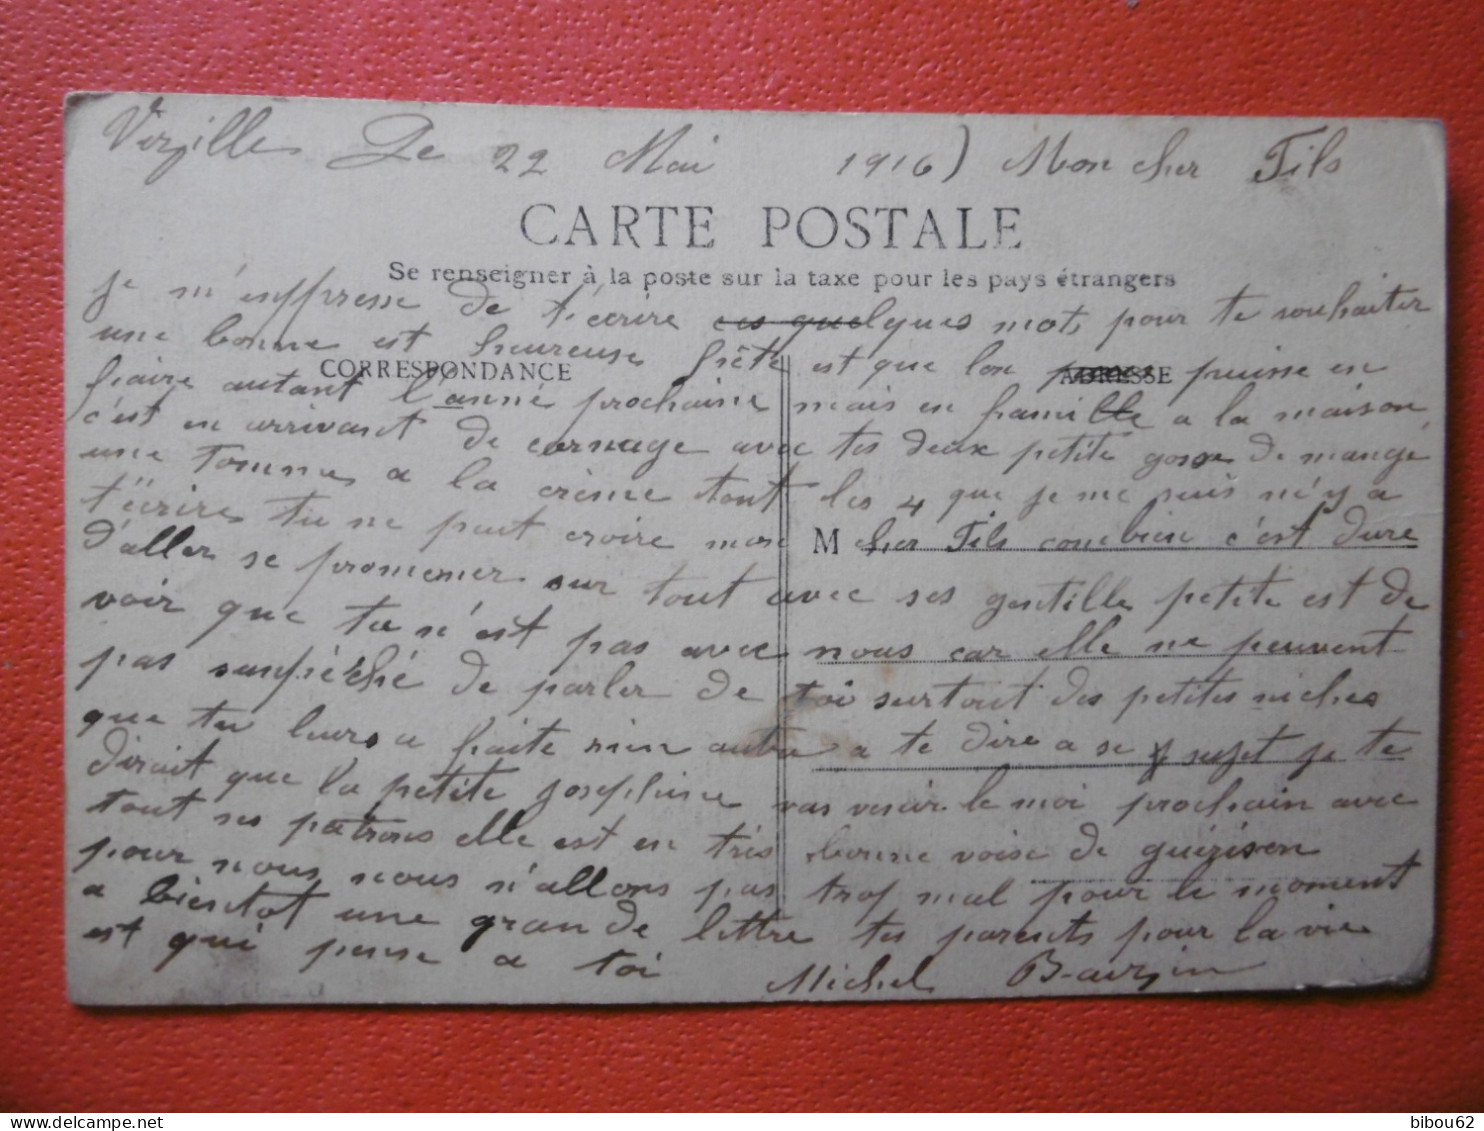 Vizille Le 22 Mai 1916) Mon cher Fils
CARTE POSTALE
Se renseigner à la poste sur la taxe pour les pays étrangers
je m'enppresse de t'écrire ces quelques mot pour te souhaiter
une bonne est heureuse fiête est que lon puisse en
CORRESPONDANCE ADRESSE
faire autant l'anné prochaine mais en famille a la maison
c'est en arrivant de carnage avec tes deux petite gosse de mangé
une tomme a la crème tout les 4 que je me suis m'y a
t'écrire tu ne peut croire mon cher Fils combien c'est dure
M
d'aller se promener sur tout avec ses gentille petite est de
voir que tu n'est pas avec nous car elle ne peuvent
pas s'enpéché de parler de toi surtout des petites niches
que tu leurs a faite rien autre a te dire a se sujet je te
dirait que la petite josephine vas venir le moi prochain avec
tout ses patrons elle est en très bonne voise de guérison
pour nous nous n'allons pas trop mal pour le moment
a bientot une grande lettre tes parents pour la vie
est qui pense a toi Michel
bibou62